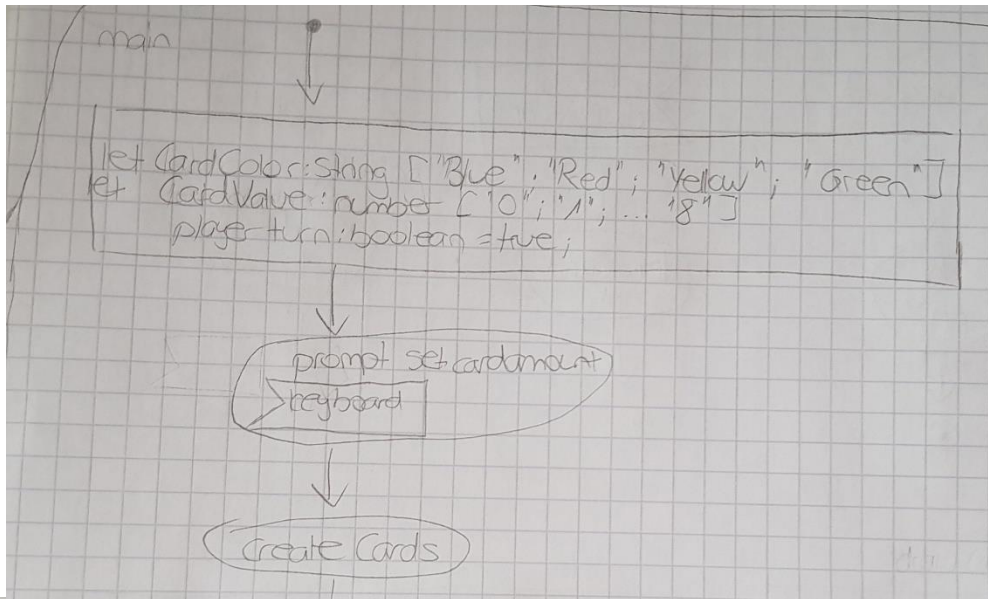 main
let CardColor:String ["Blue". "Red"; "Yellow"; "Green"]
let CardValue:number ["0"; "1"; ... "8"]
player turn:boolean = true;
prompt set cardamount
keyboard
Create Cards